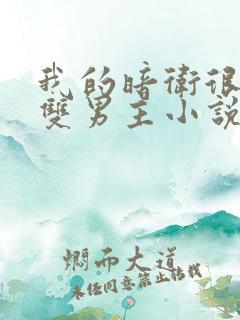 我的暗衛很
雙男主小說
燜而大道
未经同意禁止转载